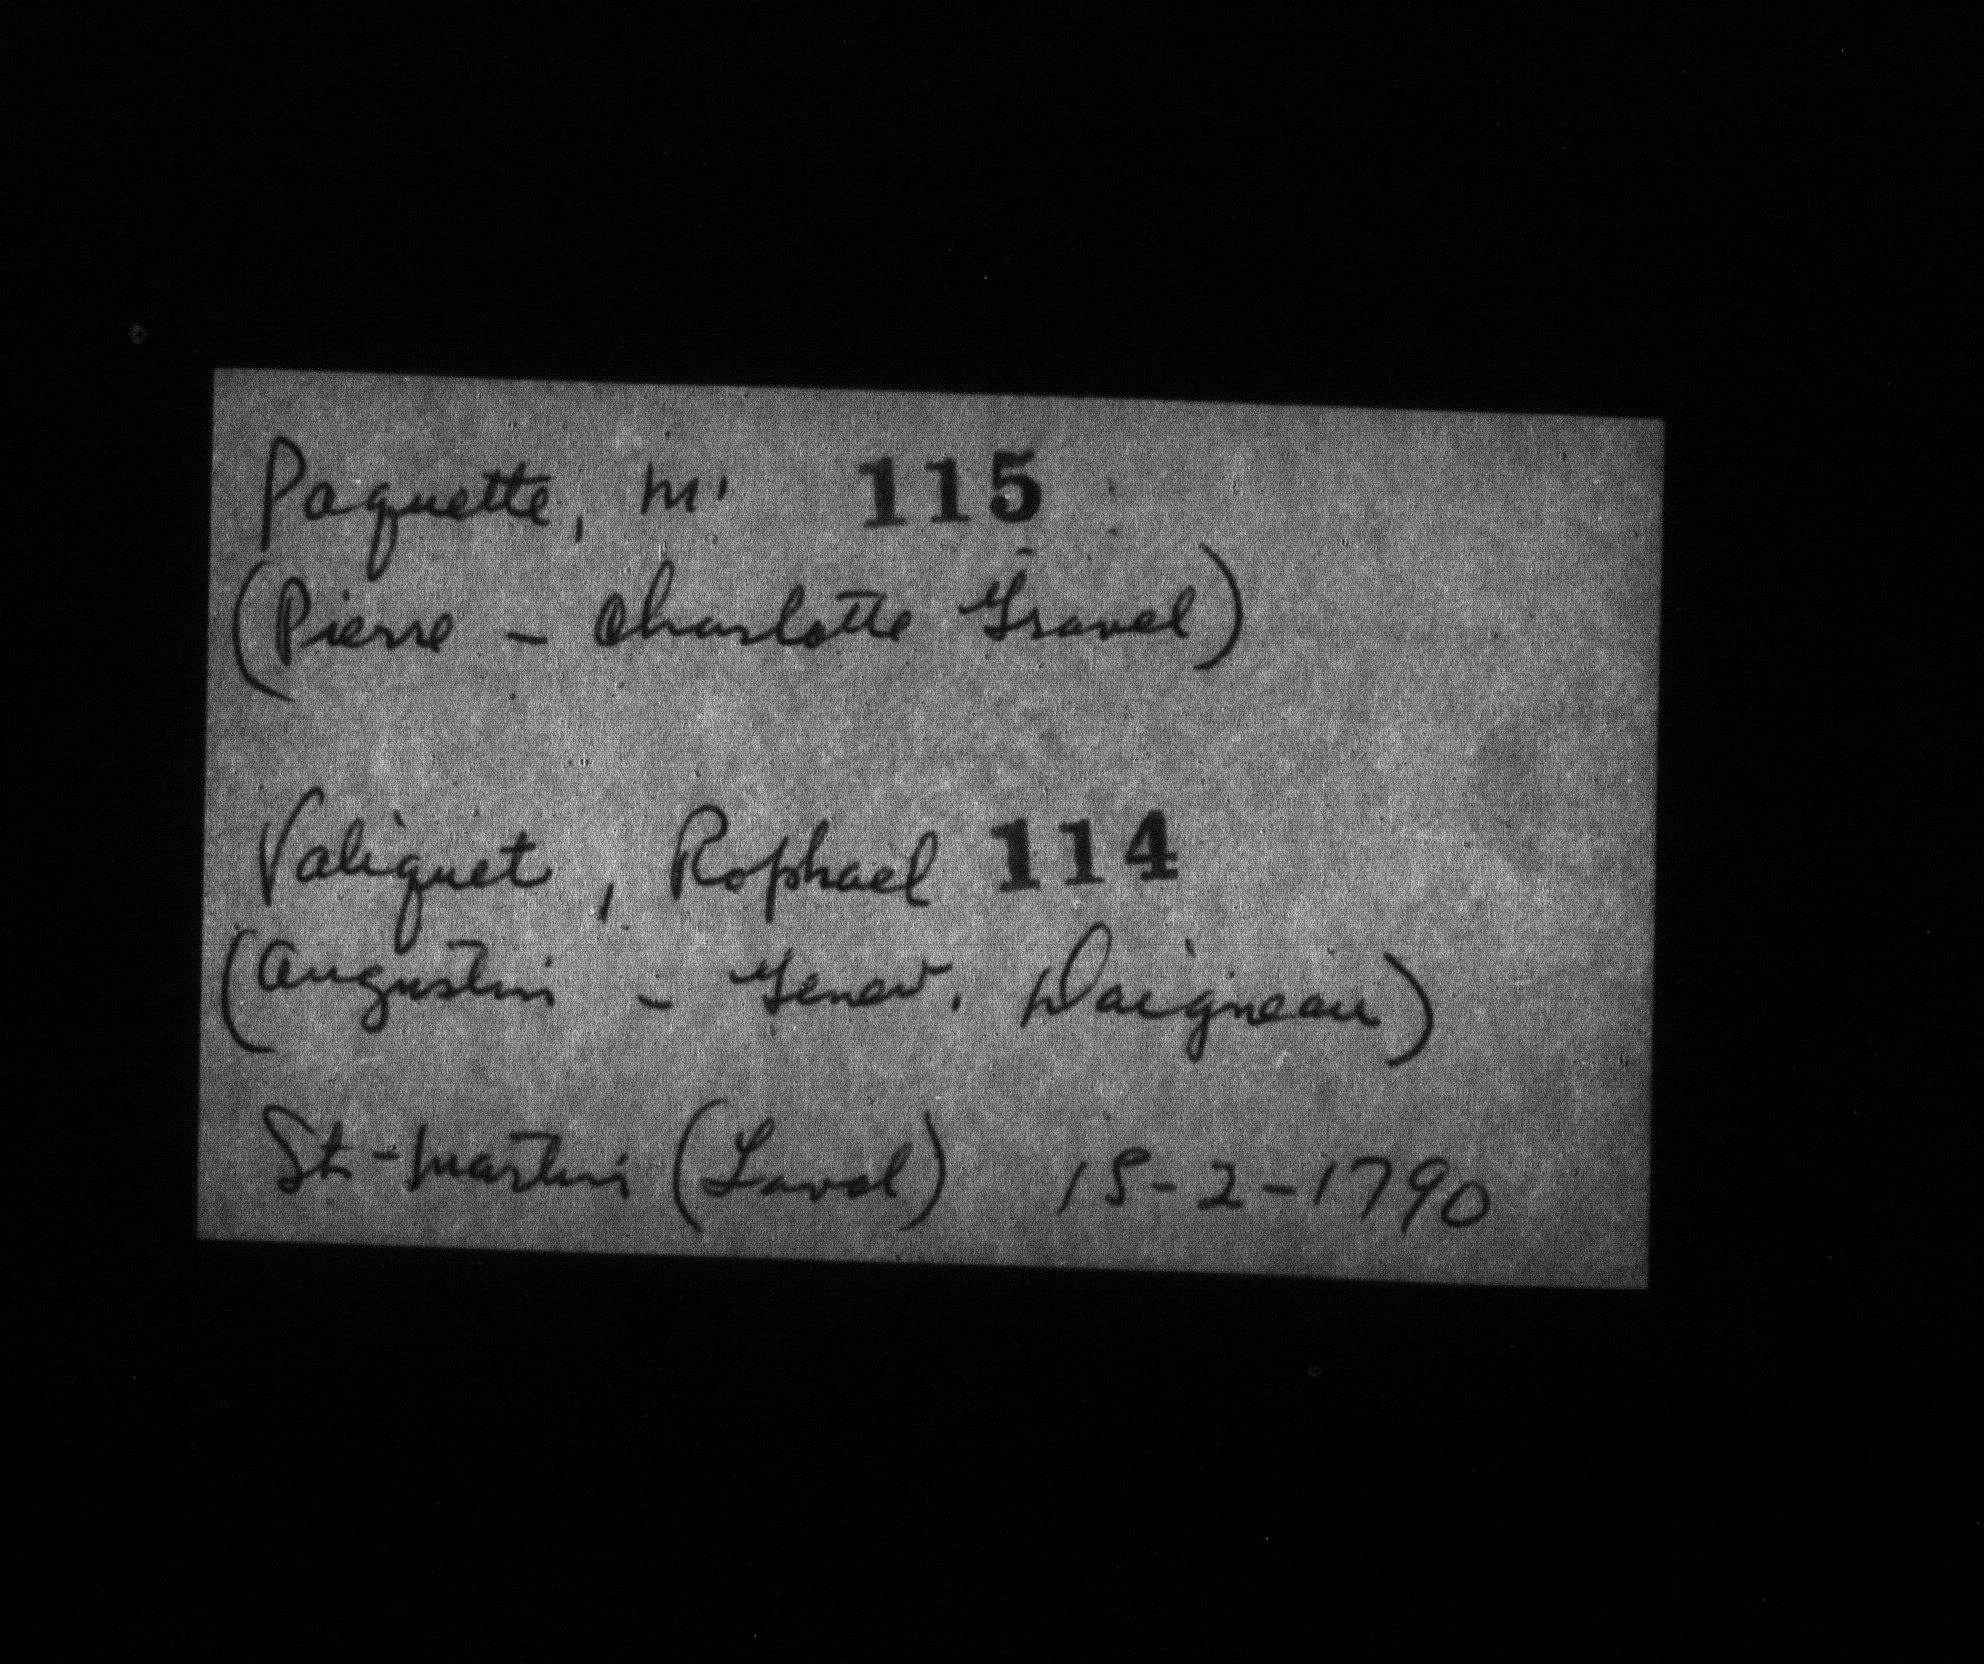 Paquette, M' 115
(Pierre - Charlotte Gravel)
Valiquet, Raphael 114
(Augustin - Genev. Daigneau)
St-Martin (Laval) 15-2-1790